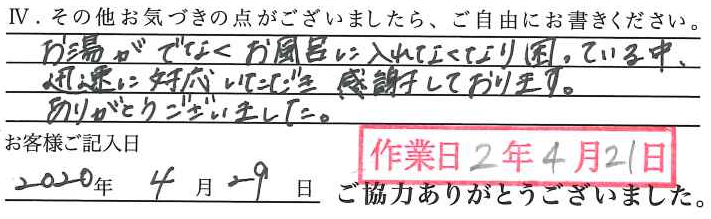 Ⅳ．その他お気づきの点がございましたら、ご自由にお書きください。
お湯がでなくお風呂に入れなくなり困っている中、
迅速に対応いただき感謝しております。
ありがとうございました。
お客様ご記入日
作業日 2年4月21日
2020年 4月29日 ご協力ありがとうございました。